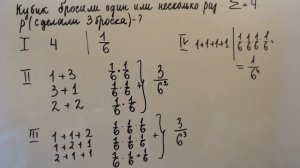 Кубик бросили один или несколько раз. Σ=4.
P(сделали 3 броска)-?
I 4 | 1/6
II 1+3 1/6·1/6
3+1 1/6·1/6 } 3/6²
2+2 1/6·1/6
III 1+1+2 1/6·1/6·1/6
1+2+1 1/6·1/6·1/6 } 3/6³
2+1+1 1/6·1/6·1/6
IV 1+1+1+1 | 1/6·1/6·1/6·1/6
= 1/6⁴